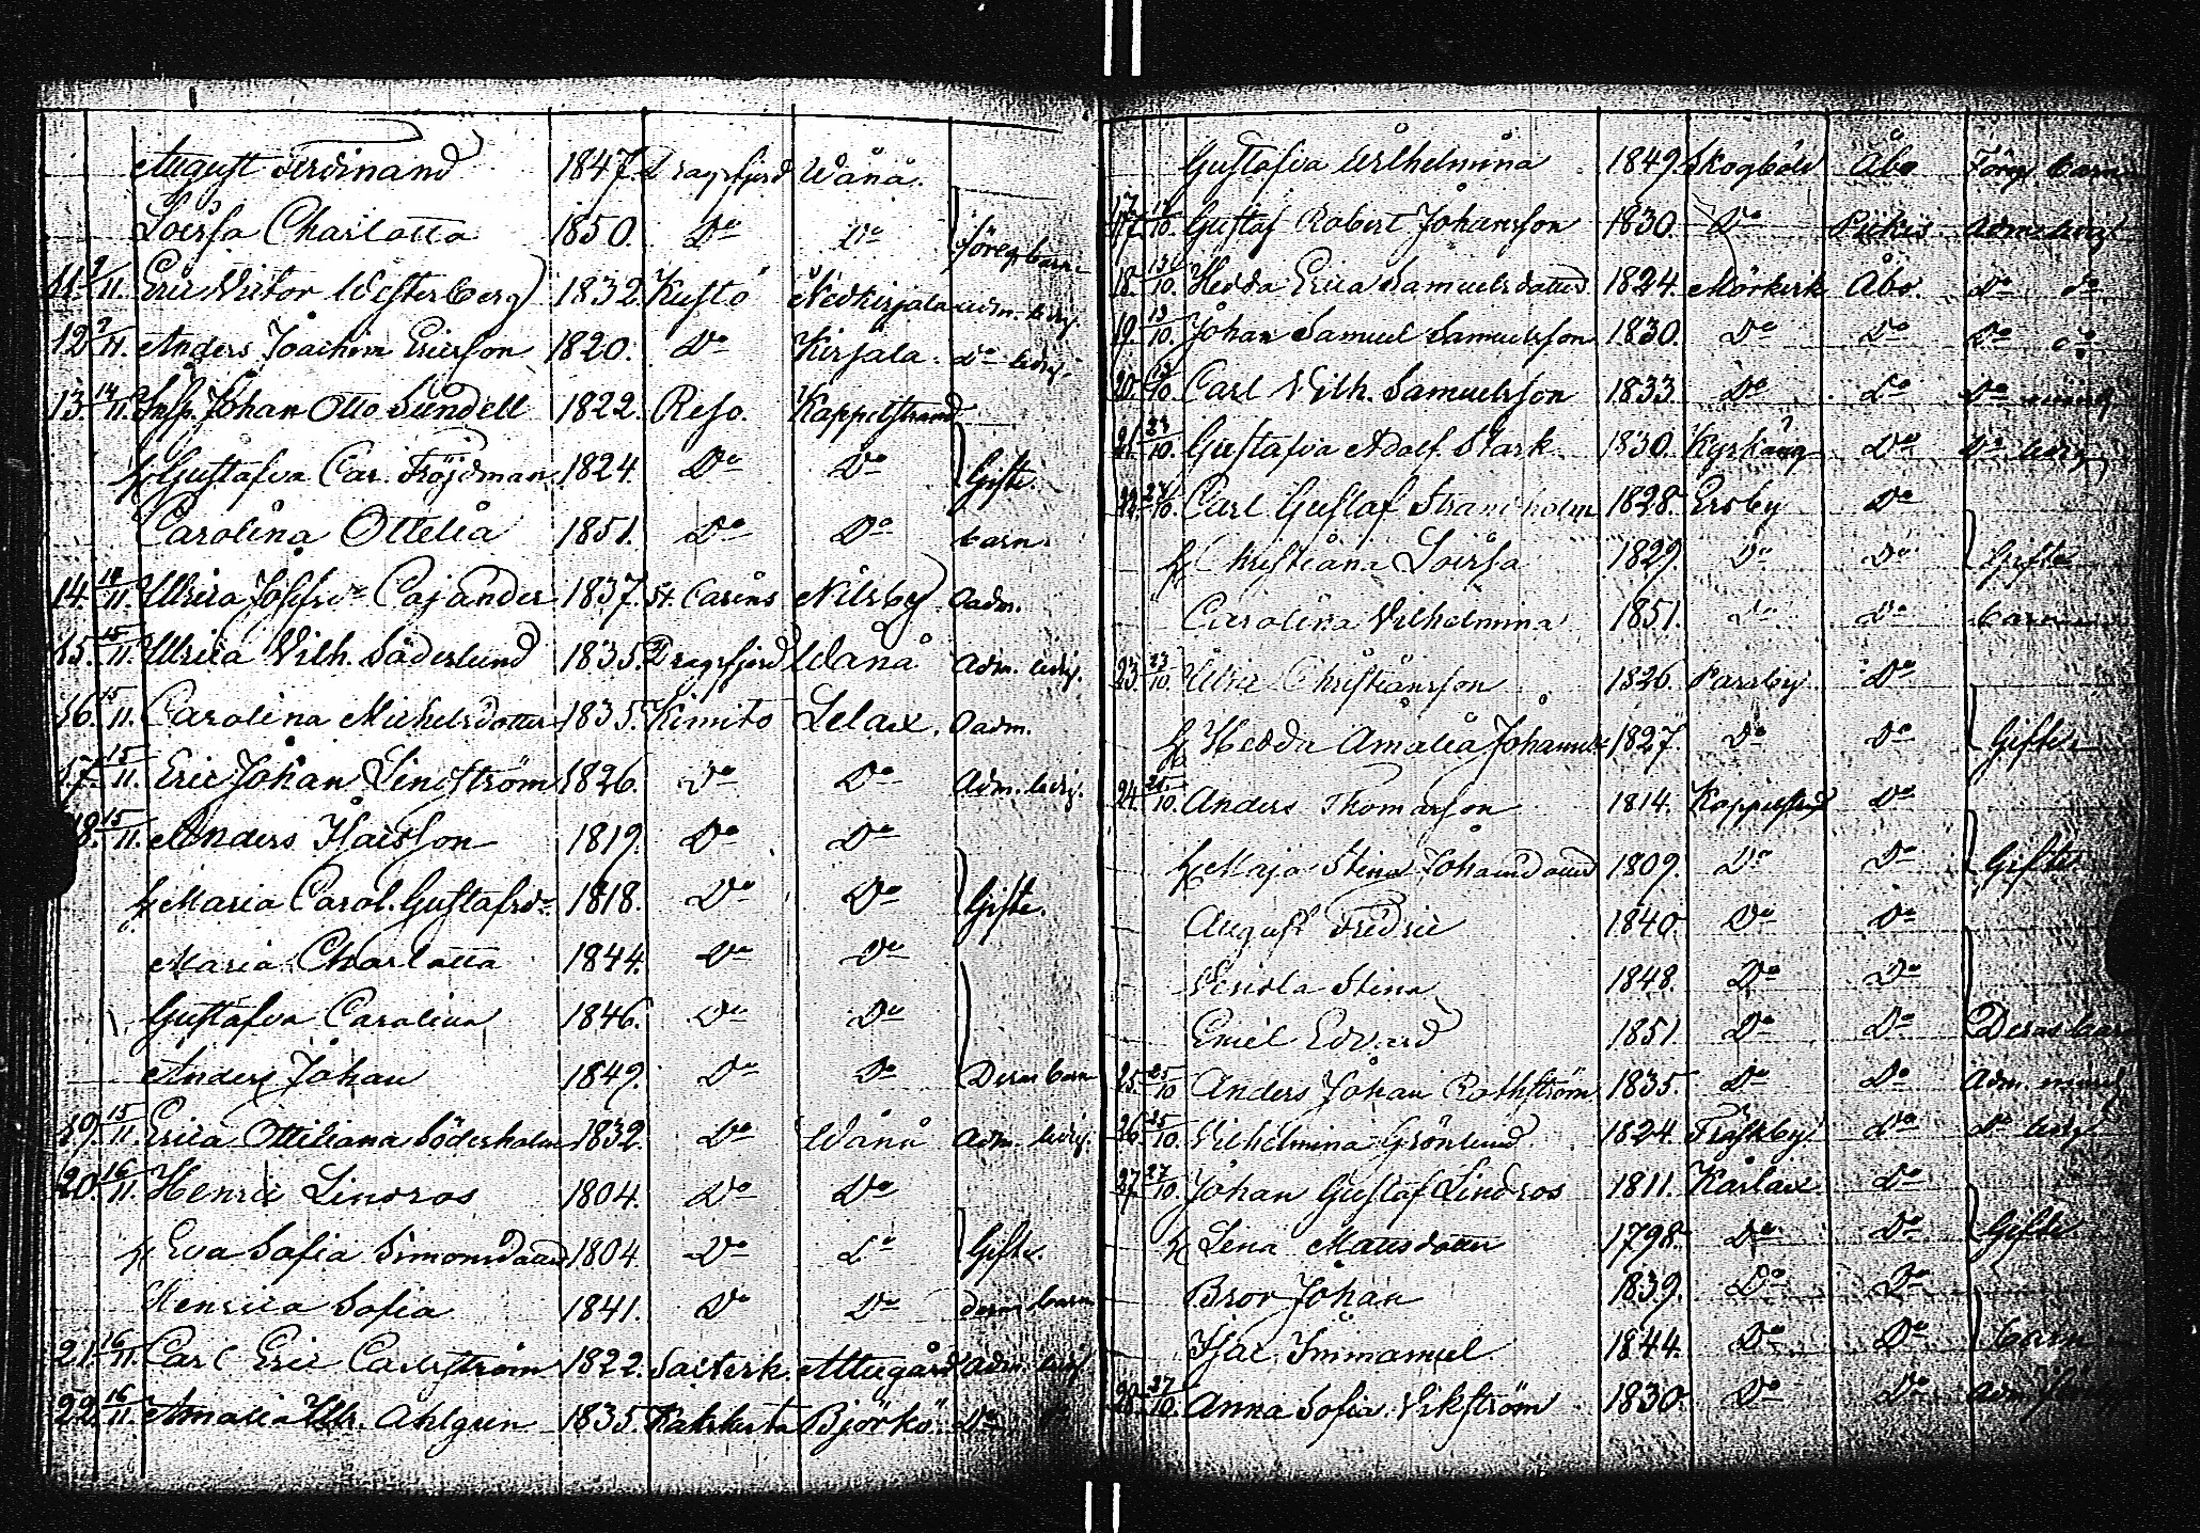 August Ferdinand 1847. Dragsfjerd Wånå.
Lovisa Charlotta 1850. Do Do föreg. barn
11. 9/11. Eric Victor Westerberg 1832. Kustö Nedkirjala adm. ledig.
12. 9/11. Anders Joachim Ericsson 1820. Do Kirjala. Do ledig.
13. 14/11. Insp. Johan Otto Sundell 1822. Reso. Kappelstrand
h Gustafva Car. Fröjdman 1824. Do Do Gifte.
Carolina Ottelia 1851. Do Do barn.
14. 14/11. Ulrica Josefsdr Cajander 1837. St. Carins Nilsby. Oadm.
15. 15/11. Ulrica Vilh. Söderlund 1835. Dragsfjerd Wånå Adm. ledig.
16. 15/11. Carolina Michelsdotter 1835. Kimito Lelax. Oadm.
17. 15/11. Eric Johan Lindström 1826. Do Do Adm. ledig.
18. 15/11. Anders Isaksson 1819. Do Do
h Maria Carol. Gustafsdr 1818. Do Do Gifte.
Maria Charlotta 1844. Do Do
Gustafva Carolina 1846. Do Do
Anders Johan 1849. Do Do Deras barn
19. 15/11. Erica Ottiliana Söderholm 1832. Do Wånå Adm. ledig.
20. 16/11. Henric Lindros 1804. Do Do
h Eva Sofia Simonsdotter 1804. Do Do Gifte.
Henrica Sofia 1841. Do Do deras barn
21. 16/11. Carl Eric Carlström 1822. Attugård adm. ledig.
22. 16/11. Amalia Vilh. Ahlgren 1835. Björkö. Do
Gustafva Wilhelmina 1849. Skogböle Åbo Föreg. barn
17. 10. Gustaf Robert Johansson 1830. Do Pickis Adm. ledig
18. 13/10. Hedda Erica Samuelsdotter 1824. Mörkirk Åbo. Do do
19. 13/10. Johan Samuel Samuelsson 1830. Do Do Do do
20. 13/10. Carl Vilh. Samuelsson 1833. Do Do Do
21. 23/10. Gustafva Adolf. Stark 1830. Kyrkäng Do Do ledig
22. 24/10. Carl Gustaf Strandholm 1828. Ersby Do
h Christiana Lovisa 1829. Do Do Gifte
Carolina Vilhelmina 1851. Do Do barn
23. 23/10. Christiansson 1826. Parsby Do
h Hedda Amalia Johansdr 1827. Do Do Gifte
24. 25/10. Anders Thomasson 1814. Kappelstrand Do
h Maja Stina Johansdotter 1809. Do Do Gifte
August Fredric 1840. Do Do
Stina 1848. Do Do
Emil Edvard 1851. Do Do Deras barn
25. 25/10 Anders Johan Rothström 1835. Do Do Adm.
26. 25/10. Vilhelmina Grönlund 1824. Fräskby Do Do ledig
27. 27/10. Johan Gustaf Lindros 1811. Kårlax. Do
h Lena Mattsdotter 1798. Do Do Gifte.
Bror Johan 1839. Do Do
Isac Immanuel 1844. Do Do barn
28. 27/10. Anna Sofia Vikström 1830. Do Do Adm.